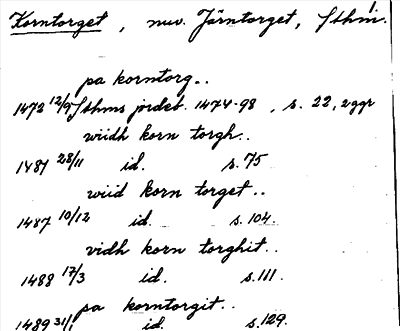 Korntorget, nuv. Järntorget, Sthm.
pa korntorg..
1472 12/9 Sthms jordeb. 1474-98, s. 22, 2ggr
wiidh korn torgh..
1481 28/11 id. s. 75
wiid korn torget..
1487 10/12 id. s. 104.
vidh korn torghit..
1488 17/3 id. s. 111.
pa korntorgit..
1489 31/1 id. s. 129.